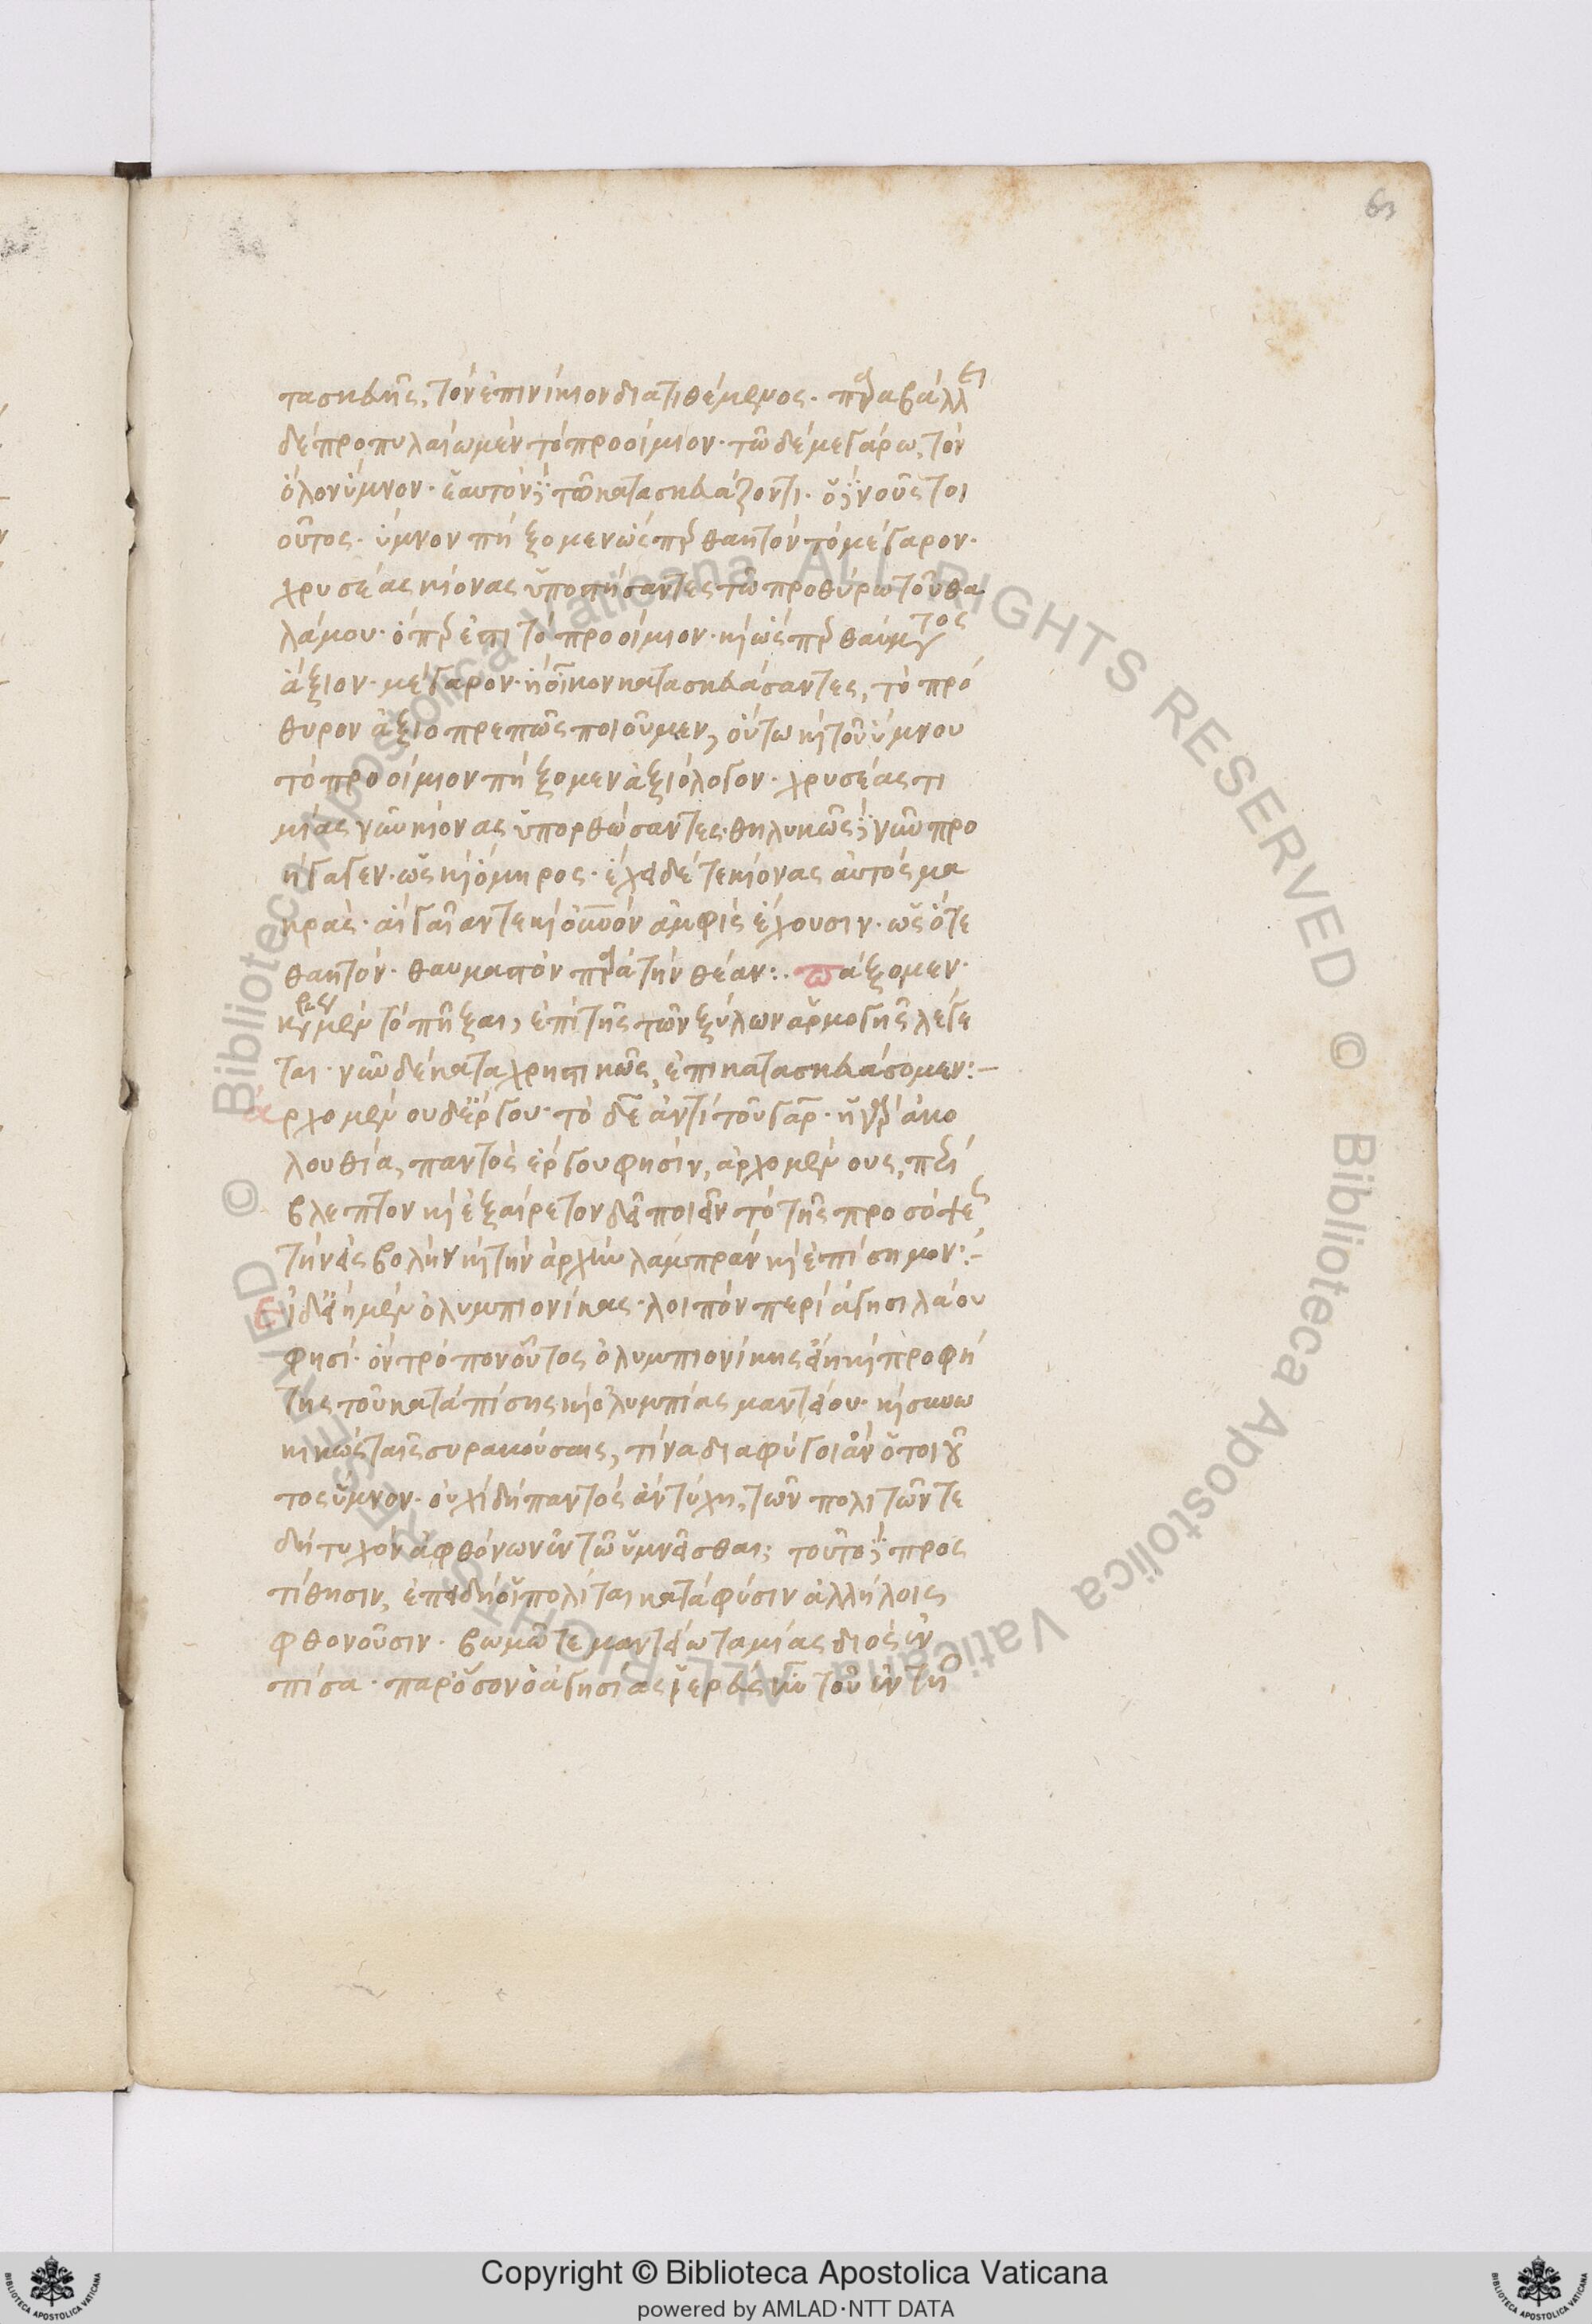 63
τασκευῆς, τὸν ἐπινίκιον διατιθέμενος· παραβάλλει
δὲ προπυλαίω μὲν τὸ προοίμιον· τῶ δὲ μεγάρω, τὸν
ὅλον ὕμνον· ἑαυτὸν δὲ τῶ κατασκευάζοντι· ὁ δὲ νοῦς τοι
οῦτος· ὕμνον πήξομεν ὡς περ θαητὸν τὸ μέγαρον·
χρυσέας κίονας ὑποστήσαντες τῶ προθύρω τοῦ θα
λάμου· ὅπερ ἐστὶ τὸ προοίμιον· καὶ ὥσπερ θαύματος
ἄξιον μέγαρον ἢ οἶκον κατασκευάσαντες, τὸ πρό
θυρον ἀξιοπρεπῶς ποιοῦμεν, οὕτω καὶ τοῦ ὕμνου
τὸ προοίμιον πήξομεν ἀξιόλογον· χρυσέας τι
μίας νῦν κίονας ὑπορθώσαντες· θηλυκῶς δὲ νῦν προ
ήγαγεν· ὡς καὶ ὅμηρος· ἔχει δέ τε κίονας αὐτὸς μα
κράς· αἳ γαῖάν τε καὶ οὐρανὸν ἀμφὶς ἔχουσιν· ὡς ὅτε
θαητόν· θαυμαστὸν παρὰ τὴν θέαν:· πάξομεν·
κυρίως μὲν τὸ πῆξαι, ἐπὶ τῆς τῶν ξύλων ἁρμογῆς λέγε
ται· νῦν δὲ καταχρηστικῶς, ἐπὶ κατασκευάσομεν:–
ἀρχομένου δ' ἔργου· τὸ δὲ ἀντὶ τοῦ γάρ· ἡ γὰρ ἀκο
λουθία, παντὸς ἔργου φησίν, ἀρχομένους, περί
βλεπτον καὶ ἐξαίρετον δεῖ ποιεῖν τὸ τῆς προσόψεως
τὴν εἰσβολὴν καὶ τὴν ἀρχὴν λαμπρὰν καὶ ἐπίσημον:–
εἰ δ' εἴη μὲν ὀλυμπιονίκας· λοιπὸν περὶ ἁγησιλάου
φησί· ὃν τρόπον οὗτος ὀλυμπιονίκης εἴη καὶ προφή
της τοῦ κατὰ πίσης καὶ ὀλυμπίας μαντείου· καὶ συνω
κικὼς ταῖς συρακούσαις, τίνα διαφύγοι ἂν ὁ τοιοῦ
τος ὕμνον· οὐχὶ δὴ παντὸς ἂν τύχη, τῶν πολιτῶν τε
δὴ τυχὸν ἀφθόνων ἐν τῶ ὑμνεῖσθαι; τοῦτο δὲ προς
τίθησιν, ἐπειδὴ οἱ πολῖται κατὰ φύσιν ἀλλήλοις
φθονοῦσιν· βωμῶ τε μαντείω ταμίας διὸς ἐν
πίσα· παρόσον ὁ ἁγησίας ἱερεὺς ἦν τοῦ ἐν τῆ